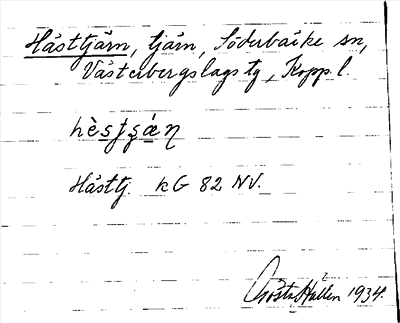 Hästtjärn, tjärn, Söderbärke sn,
Västerbergslags tg, Kopp. l.
hèstʂǽn
Hästtj. kG 82 NV.
Gösta Hallen 1934.